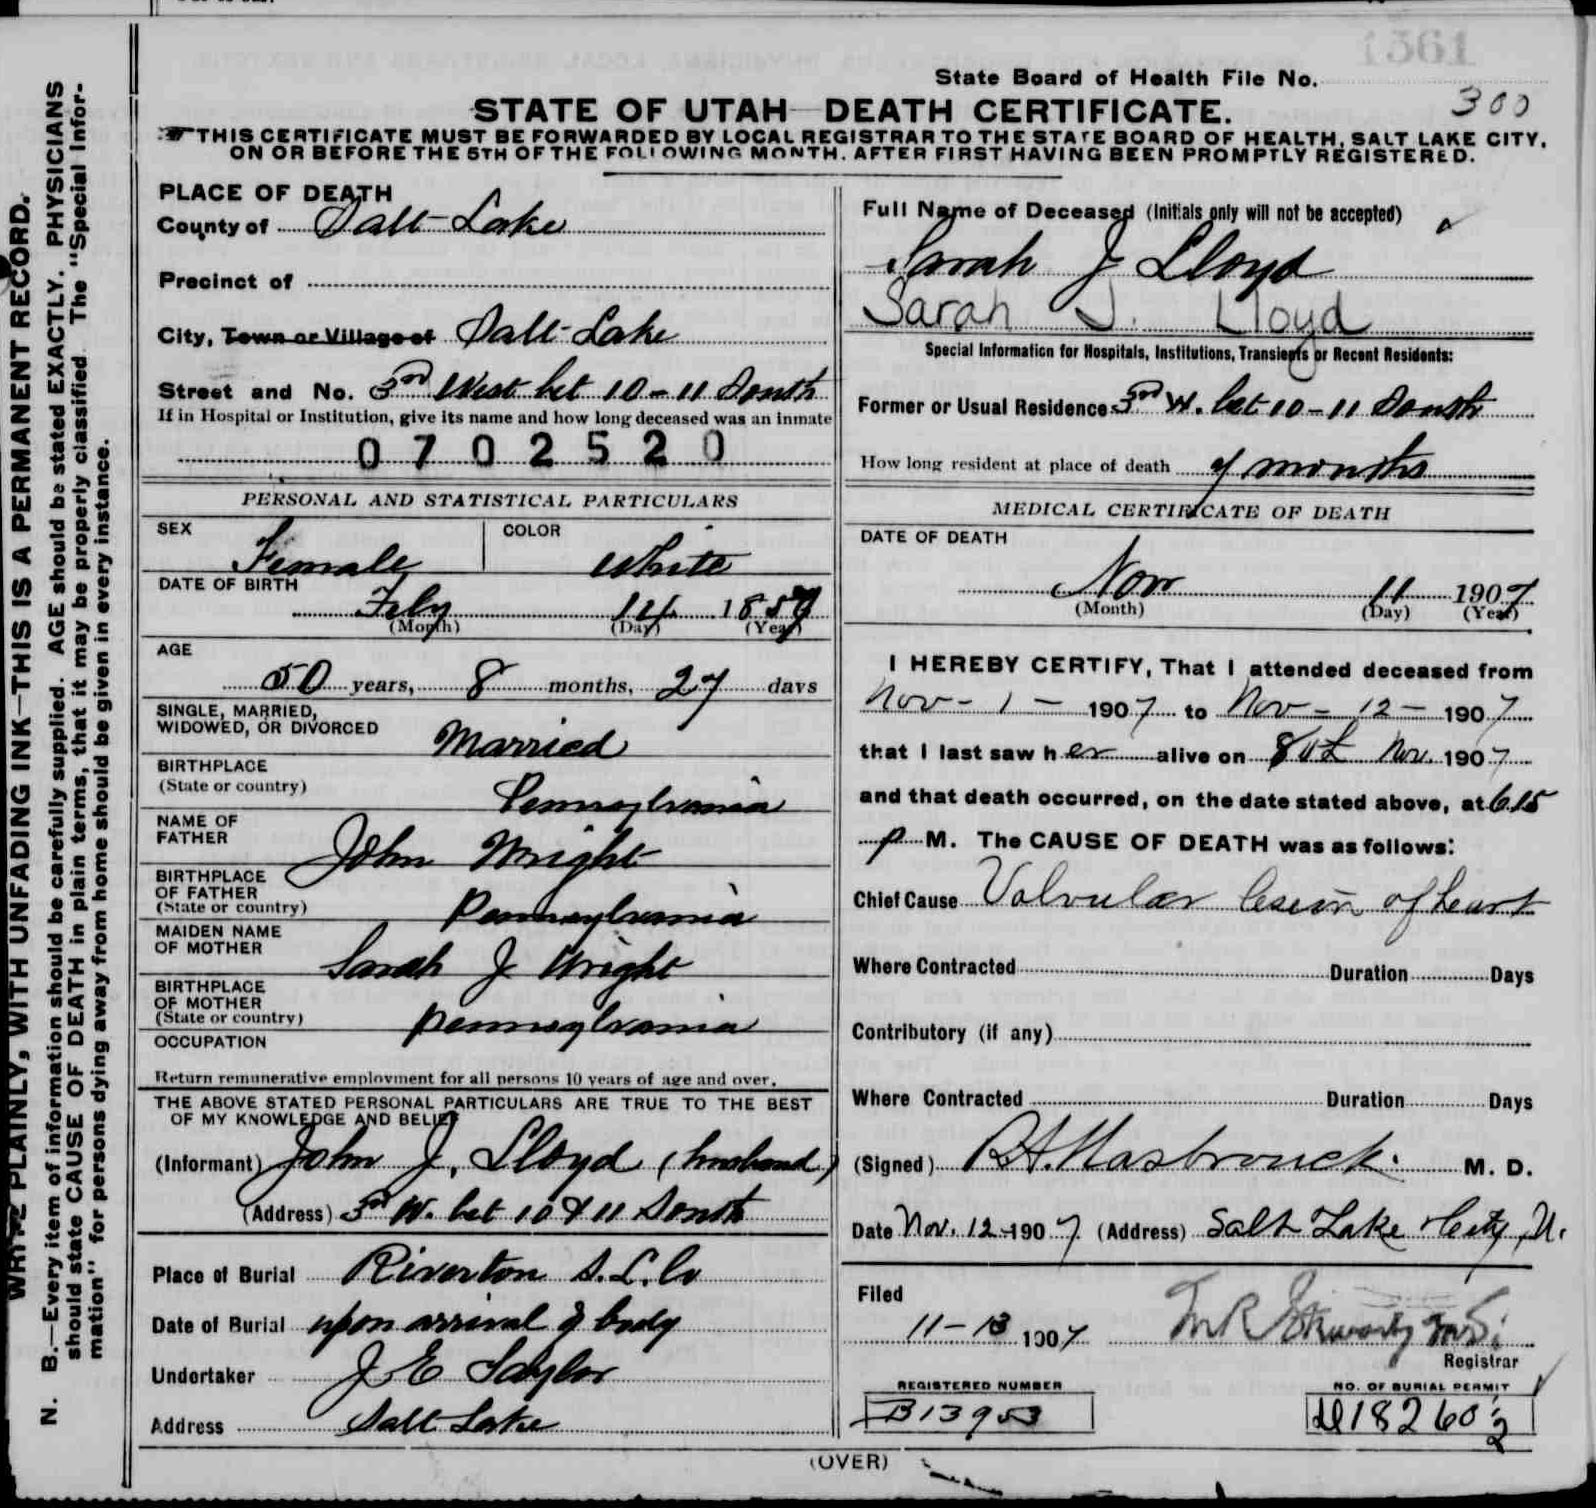 1361
State Board of Health File No. 300
STATE OF UTAH—DEATH CERTIFICATE.
THIS CERTIFICATE MUST BE FORWARDED BY LOCAL REGISTRAR TO THE STATE BOARD OF HEALTH, SALT LAKE CITY,
ON OR BEFORE THE 5TH OF THE FOLLOWING MONTH, AFTER FIRST HAVING BEEN PROMPTLY REGISTERED.
WRITE PLAINLY, WITH UNFADING INK—THIS IS A PERMANENT RECORD.
N. B.—Every item of information should be carefully supplied. AGE should be stated EXACTLY. PHYSICIANS
should state CAUSE OF DEATH in plain terms, that it may be properly classified. The "Special Infor-
mation" for persons dying away from home should be given in every instance.
PLACE OF DEATH
County of Salt Lake
Precinct of
City, Town or Village of Salt Lake
Street and No. 3rd West bet 10-11 South
If in Hospital or Institution, give its name and how long deceased was an inmate
0702520
PERSONAL AND STATISTICAL PARTICULARS
SEX Female COLOR White
DATE OF BIRTH
Feby 14 1857
(Month) (Day) (Year)
AGE
50 years, 8 months, 27 days
SINGLE, MARRIED,
WIDOWED, OR DIVORCED Married
BIRTHPLACE
(State or country) Pennsylvania
NAME OF
FATHER John Wright
BIRTHPLACE
OF FATHER
(State or country) Pennsylvania
MAIDEN NAME
OF MOTHER Sarah J Wright
BIRTHPLACE
OF MOTHER
(State or country) Pennsylvania
OCCUPATION
Return remunerative employment for all persons 10 years of age and over.
THE ABOVE STATED PERSONAL PARTICULARS ARE TRUE TO THE BEST
OF MY KNOWLEDGE AND BELIEF
(Informant) John J. Lloyd (husband)
(Address) 3rd W. bet 10 & 11 South
Place of Burial Riverton S. L. Co
Date of Burial upon arrival of body
Undertaker J E Taylor
Address Salt Lake
Full Name of Deceased (Initials only will not be accepted)
Sarah J Lloyd
Sarah J. Lloyd
Special Information for Hospitals, Institutions, Transients or Recent Residents:
Former or Usual Residence 3rd W. bet 10-11 South
How long resident at place of death 7 months
MEDICAL CERTIFICATE OF DEATH
DATE OF DEATH
Nov 11 1907
(Month) (Day) (Year)
I HEREBY CERTIFY, That I attended deceased from
Nov - 1 - 1907 to Nov - 12 - 1907
that I last saw her alive on Nov. 1907
and that death occurred, on the date stated above, at 6.15
P M. The CAUSE OF DEATH was as follows:
Chief Cause Valvular lesion of heart
Where Contracted Duration Days
Contributory (if any)
Where Contracted Duration Days
(Signed) Hasbrouck. M. D.
Date Nov. 12 1907 (Address) Salt Lake City, U.
Filed
11-13 1907
Registrar
REGISTERED NUMBER
B13953
NO. OF BURIAL PERMIT
18260½
(OVER)